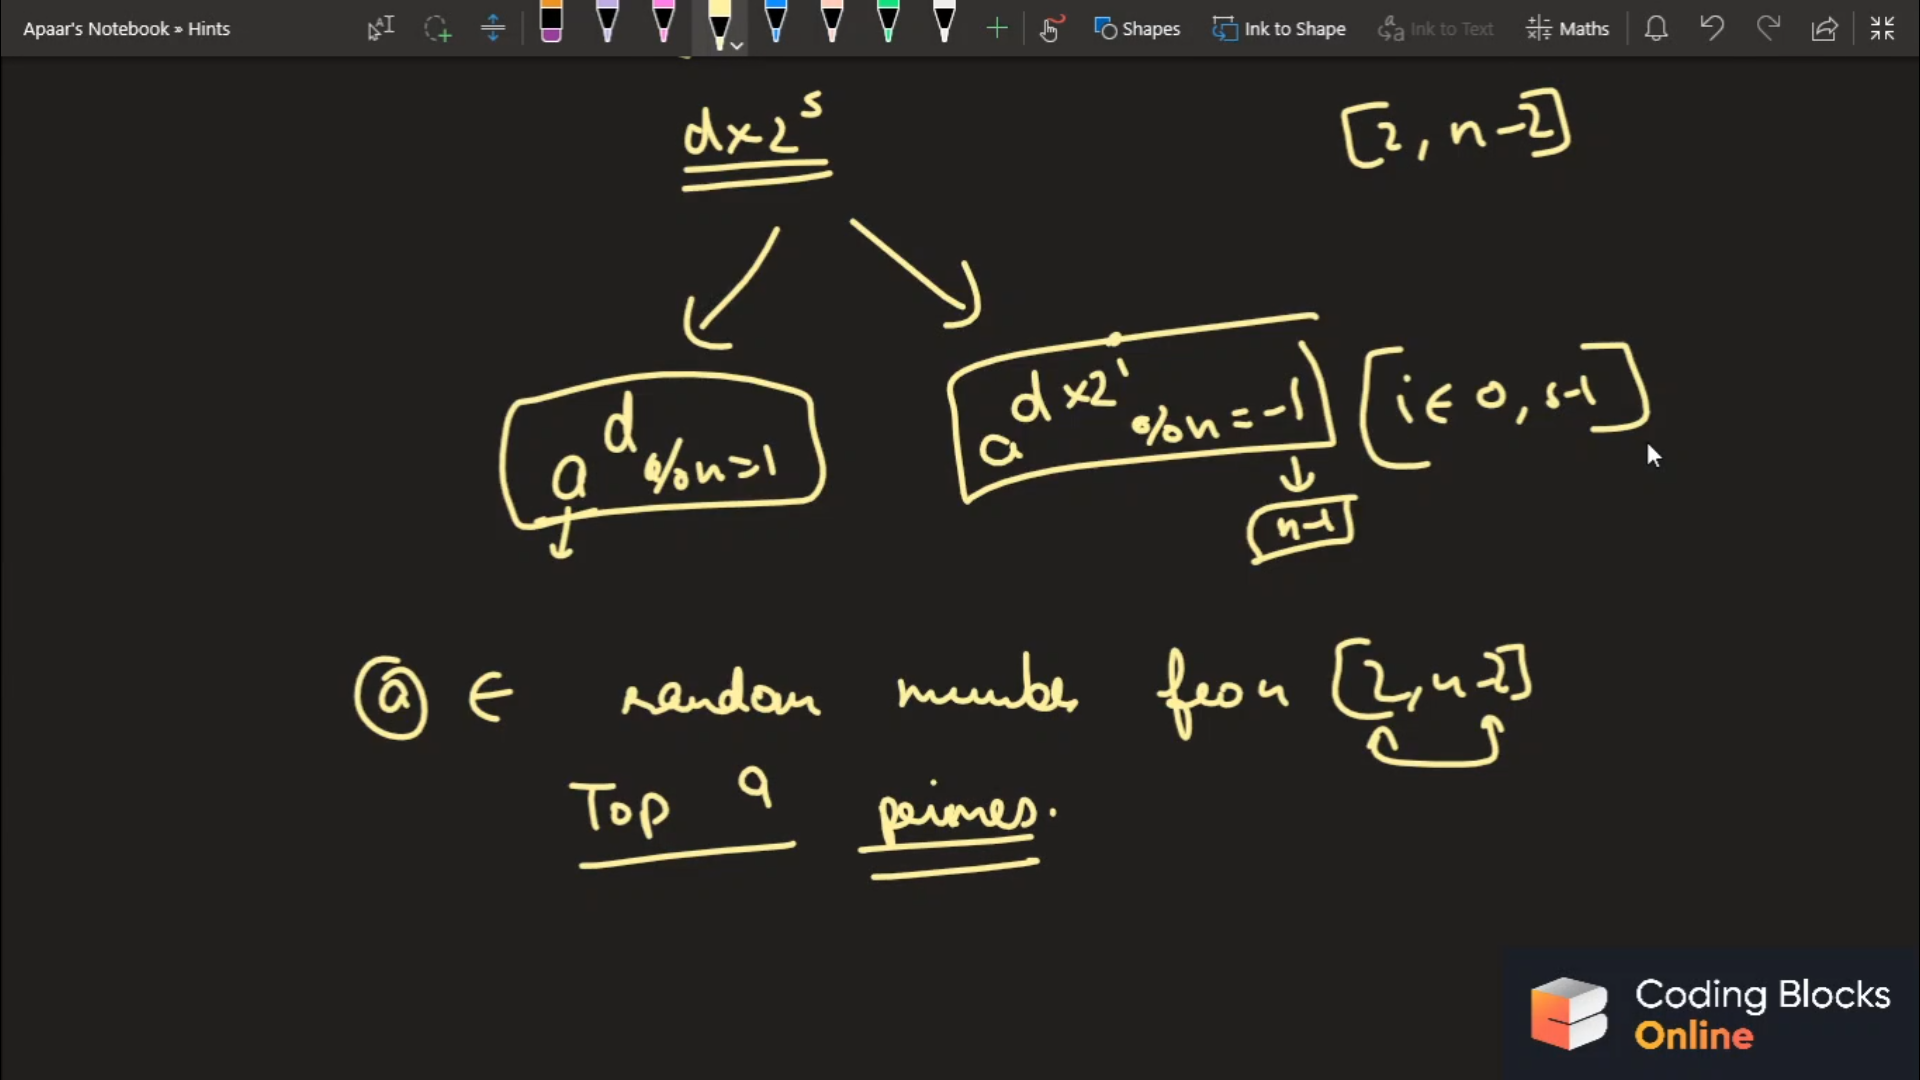 Apaar's Notebook » Hints
Shapes
Ink to Shape
Ink to Text
Maths
d×2^s
[2, n-2]
a^d % n = 1
a^d×2^i % n = -1 [i ∈ 0, s-1]
n-1
a ∈ random number from [2, n-2]
Top 9 primes.
Coding Blocks
Online